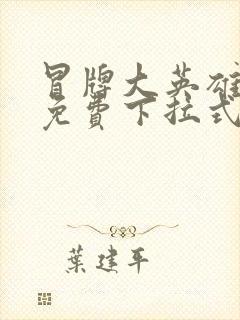 冒牌大英雄
免費下拉式
葉建平